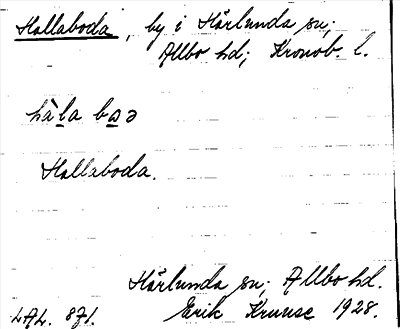 Hallaboda, by i Härlunda sn;
Allbo hd; Kronob. l.
hàla baə
Hallaboda.
Härlunda sn; Allbo hd.
LAL. 871. Erik Kruuse 1928.